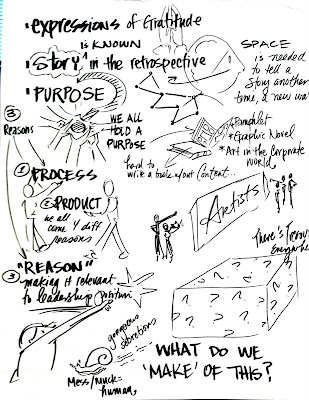 • expressions of Gratitude
is KNOWN
• Story ^ in the retrospective
• PURPOSE
SPACE
is needed
to tell a
Story another
time, a new wa
③
Reasons
WE ALL
HOLD A
PURPOSE
* Pamphlet
* Graphic Novel
* Art in the Corporate
World
hard to
write a book w/out content...
① PROCESS
② PRODUCT
we all
come 4 diff
reasons
Artists
③ "REASON"
making it relevant
to leadership
There's
Everywhere
? ? ? ? ? ? ? ? ? ?
gorgeous
secretions
Mess/Muck =
human
WHAT DO WE
'MAKE' OF THIS?